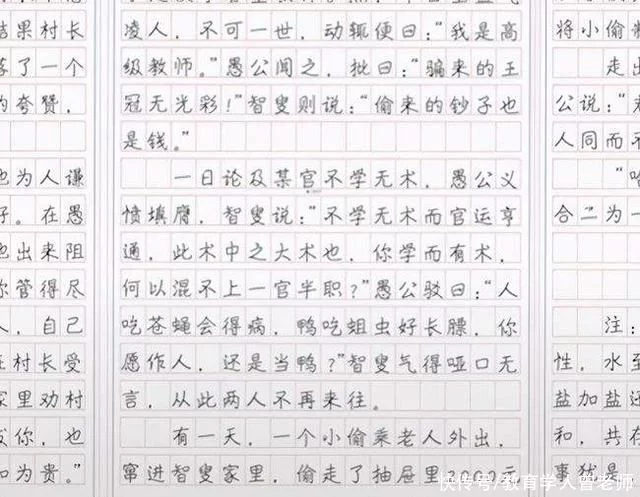 结果村长
落了一个
的夸赞，
也为人谦
好。在愚
也出来阻
你管得尽
人，自己
在村长受
家里劝村
你，也
和为贵。”
凌人，不可一世，动辄便曰：“我是高
级教师。”愚公闻之，批曰：“骗来的王
冠无光彩！”智叟则说：“偷来的钞子也
是钱。”
一日论及某官不学无术，愚公义
愤填膺，智叟说：“不学无术而官运亨
通，此术中之大术也，你学而有术，
何以混不上一官半职？”愚公驳曰：“人
吃苍蝇会得病，鸭吃蛆虫好长膘，你
愿作人，还是当鸭？”智叟气得哑口无
言，从此两人不再来往。
有一天，一个小偷乘老人外出，
窜进智叟家里，偷走了抽屉里2000元
将小偷
走出
公说：“
人同而不
“哈
合二为一
注：
性，水至
盐加盐还
和，共存
事犹是
快传号/教育学人曾老师